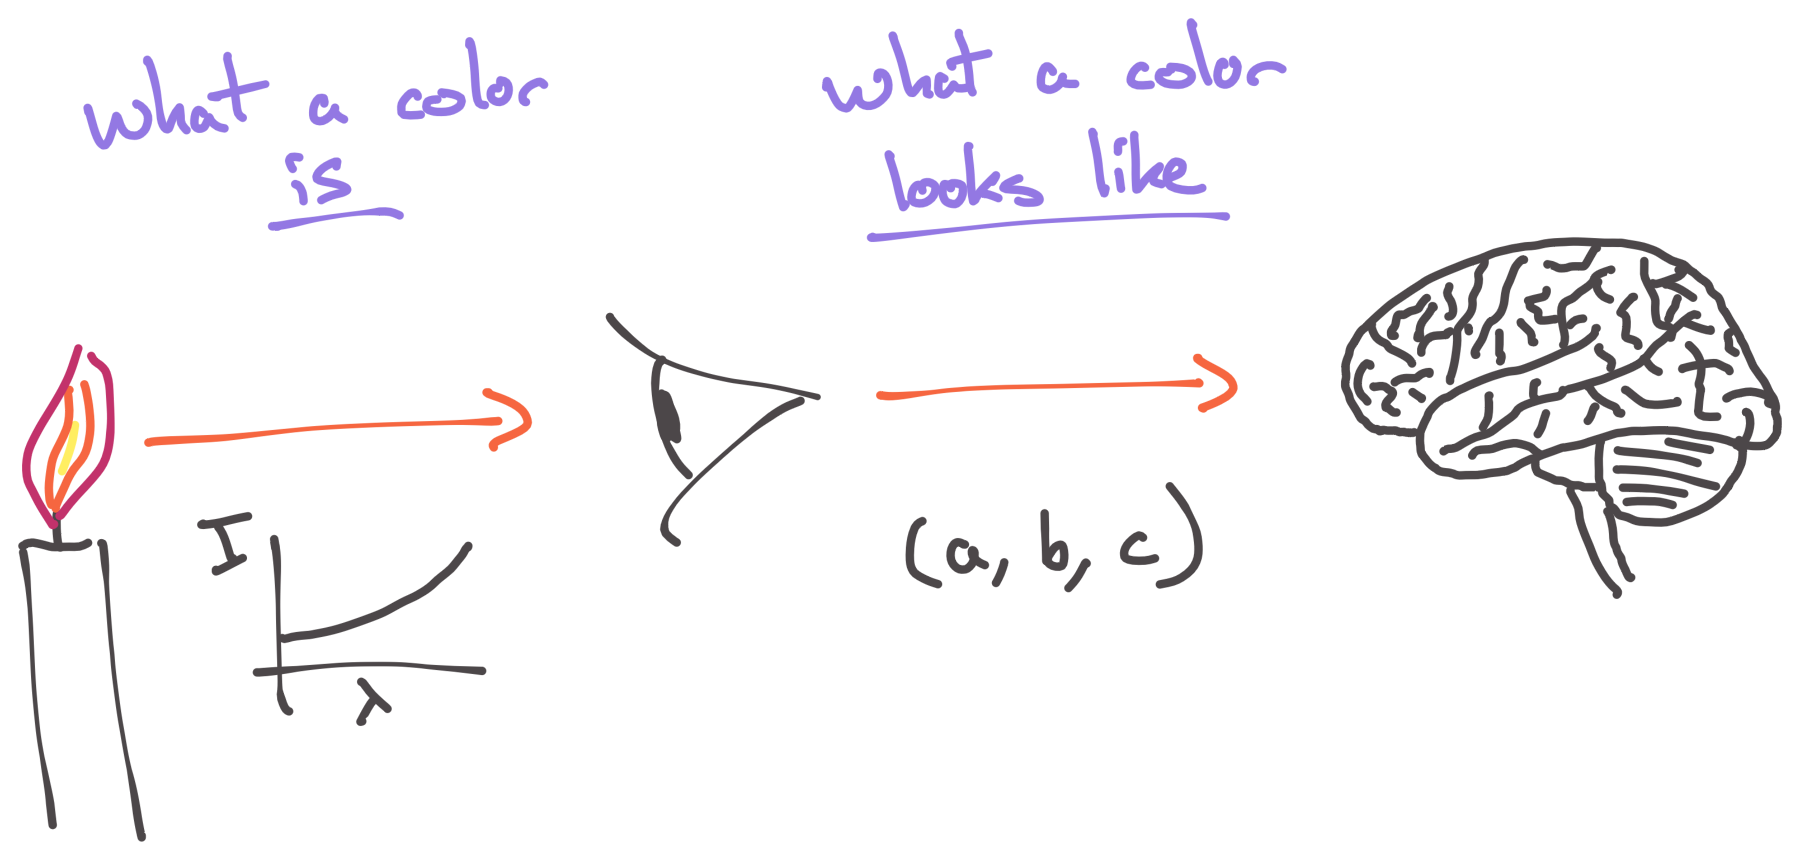 what a color
is
what a color
looks like
I
λ
(a, b, c)